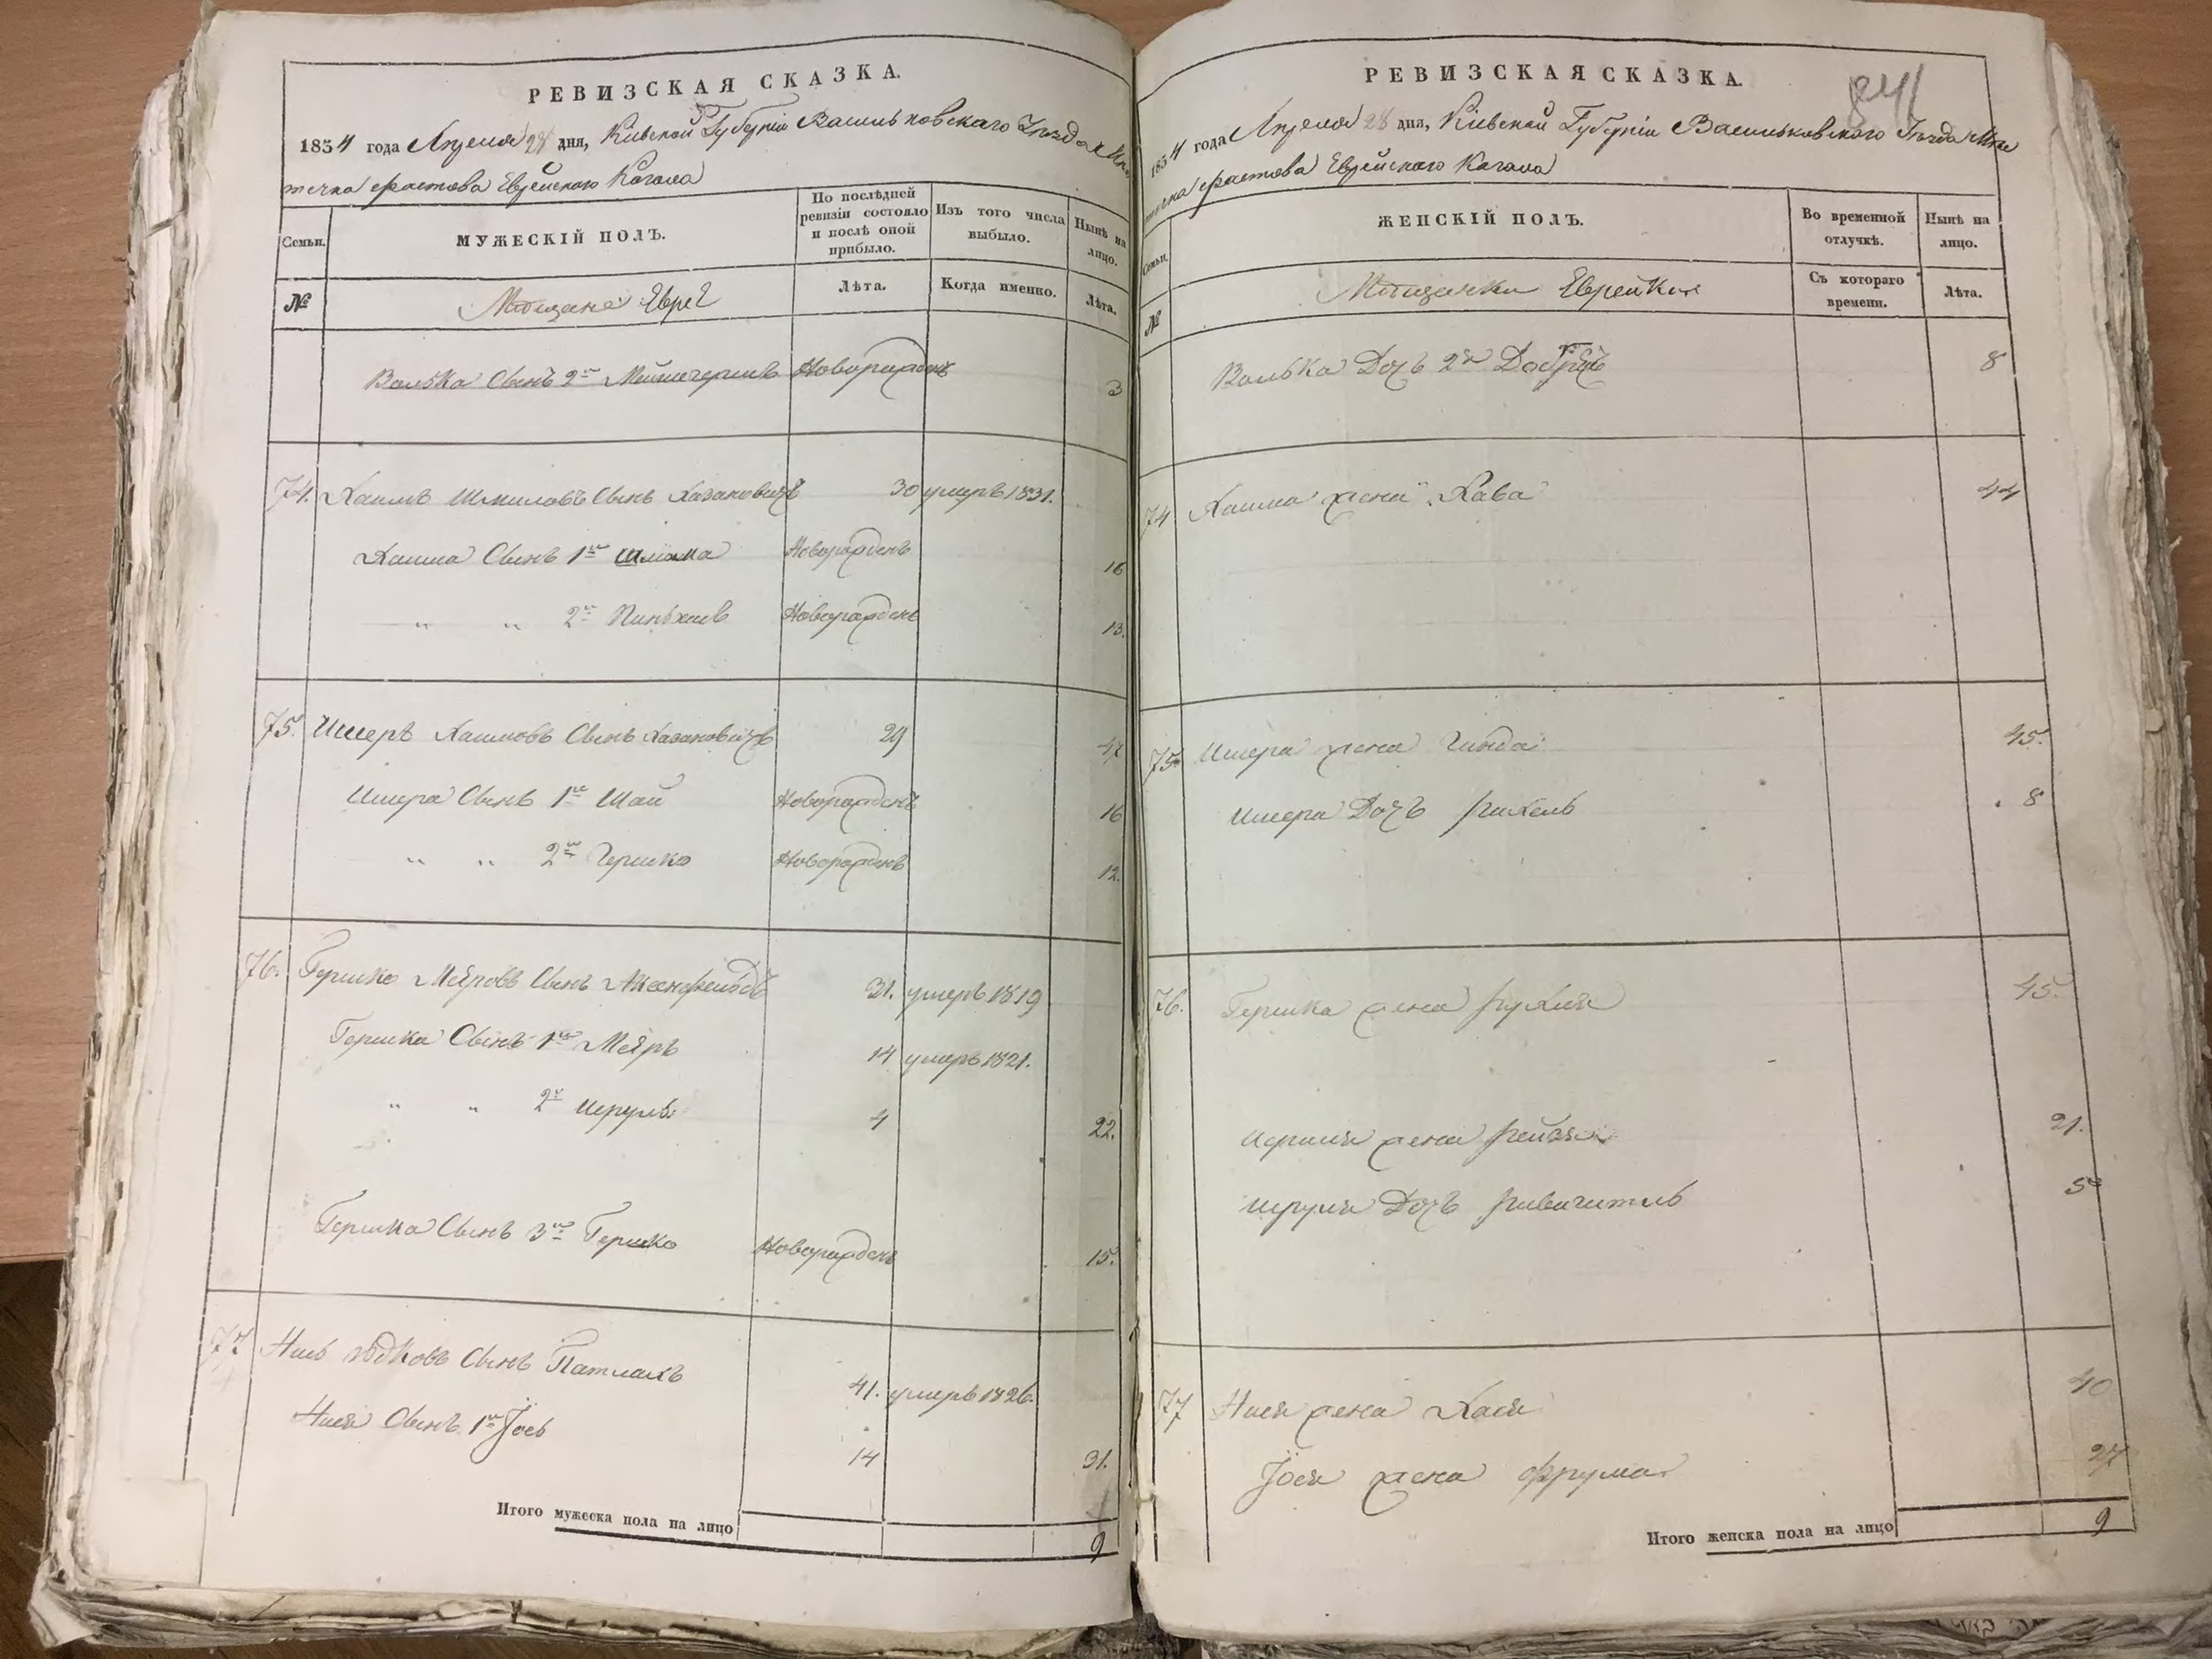 РЕВИЗСКАЯ СКАЗКА.
1834 года Апреля 28 дня, Кіевской Губерніи Васильковскаго Уезда Ме
течка Фастова Еврейскаго Кагала
Семьи.
МУЖЕСКІЙ ПОЛЪ.
По послѣдней ревизіи состояло и послѣ оной прибыло.
Изъ того числа выбыло.
Нынѣ на лицо.
№
Мещане Евреи
Лѣта.
Когда именно.
Лѣта.
Волька Сынъ 2й Новорожденъ 3
74. Хаимъ Шмиловъ Сынъ Казановичъ 30 умеръ 1831.
Хаима Сынъ 1й Шлиома Новорожденъ 16
" " 2й Пинхасъ Новорожденъ 13.
75. Ишеръ Хаимовъ Сынъ Казановичъ 29 47
Ишера Сынъ 1й Шай Новорожденъ 16
" " 2й Гершко Новорожденъ 12.
76. Гершко Меѣровъ Сынъ Аксенфельдъ 31. умеръ 1819
Гершка Сынъ 1й Меѣръ 14 умеръ 1821.
" " 2й Исруль 4 22.
Гершка Сынъ 3й Гершко Новорожденъ 15.
77 Нисъ Юдковъ Сынъ Патлахъ 41. умеръ 1826.
Нися Сынъ 1й Іось 14 31.
Итого мужеска пола на лицо 9
РЕВИЗСКАЯ СКАЗКА.
841
1834 года Апреля 28 дня, Кіевской Губерніи Васильковскаго Уезда Мес
течка Фастова Еврейскаго Кагала
Семьи.
ЖЕНСКІЙ ПОЛЪ.
Во временной отлучкѣ.
Нынѣ на лицо.
№
Мещанки Еврейки
Съ котораго времени.
Лѣта.
Волька Дочь 2я 8
74 Хаима жена Хава 44
75 Ишера жена Гинда 45.
Ишера Дочь Рихель 8
76. Гершка жена Рухля 45.
Исруля жена Рейзя 21.
Исруля Дочь 5
77 Нися жена Хася 40
Іося жена Фрума 27
Итого женска пола на лицо 9